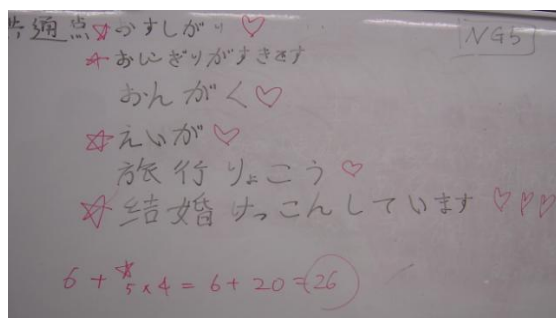 共通点☆おすしがり♡
NG5
☆おにぎりがすきです
おんがく♡
☆えいが♡
旅行りょこう♡
☆結婚けっこんしています♡♡♡
6 + ☆5 x 4 = 6 + 20 = 26